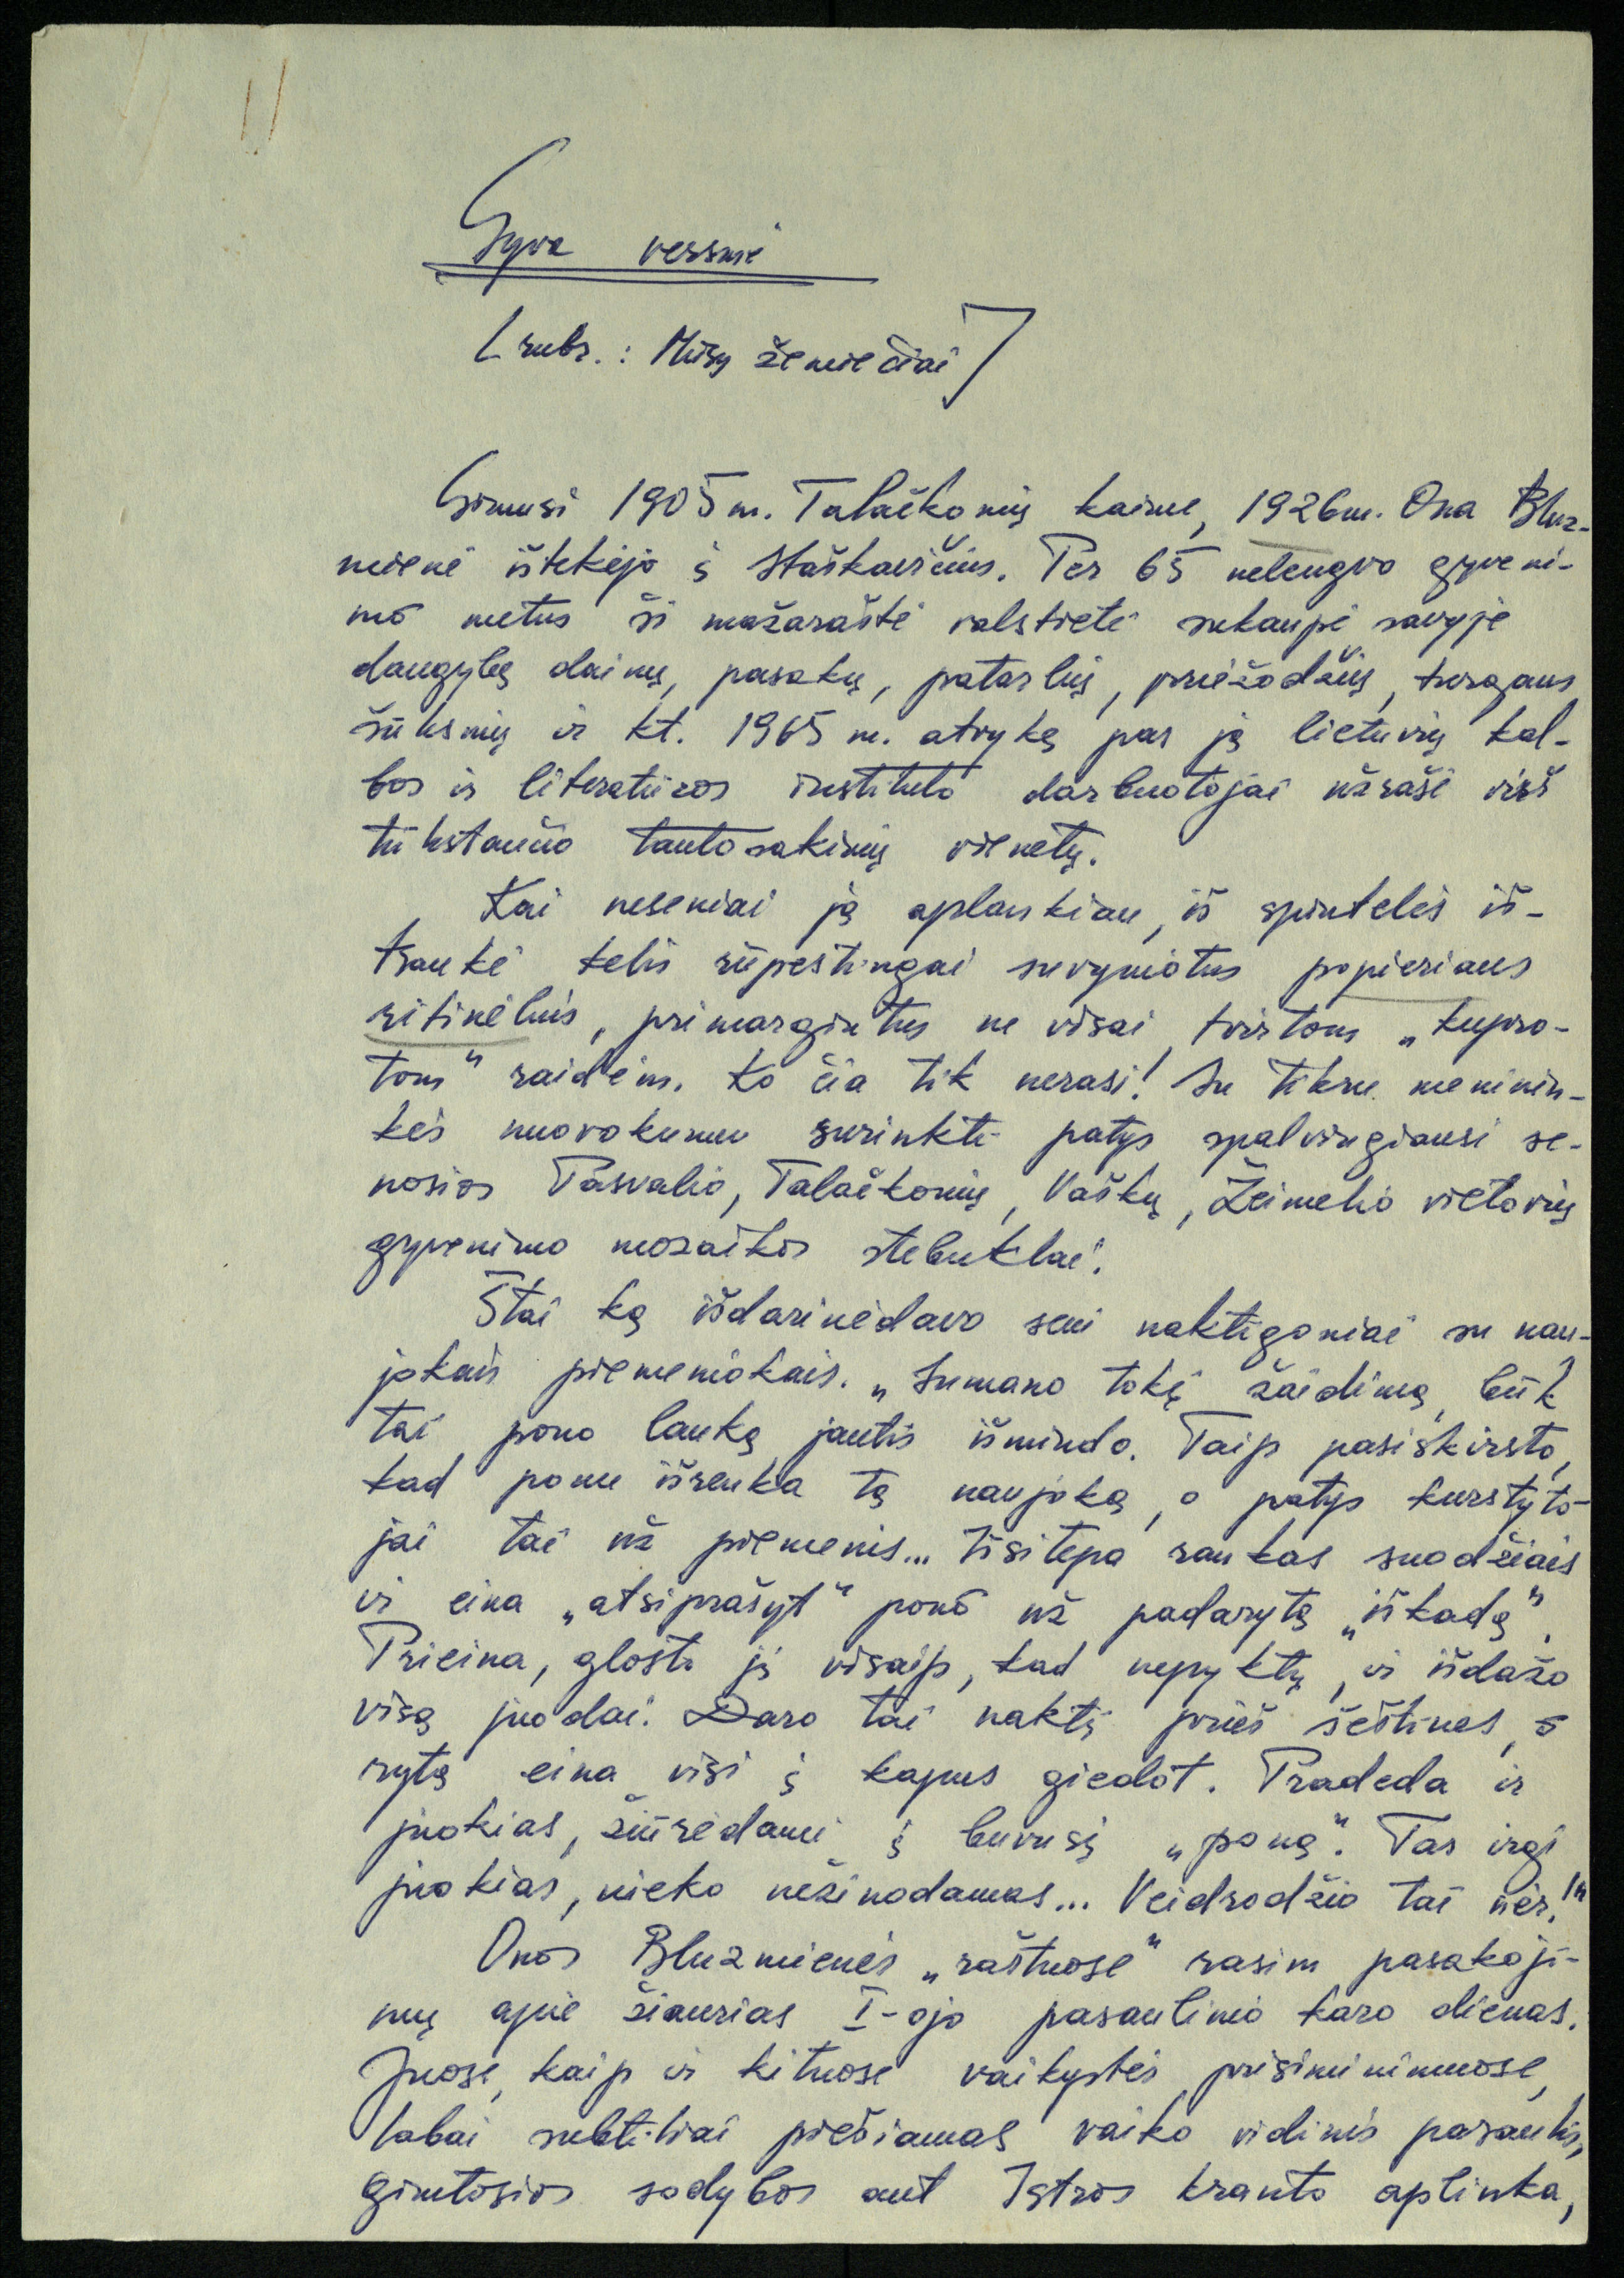 Gyva versmė
[rubr.: Mūsų žemiečiai]
Gimusi 1905 m. Talačkonių kaime, 1926 m. Ona Bluz-
mienė ištekėjo į Staškavičius. Per 65 nelengvo gyveni-
mo metus ši mažaraštė valstietė sukaupė savyje
daugybę dainų, pasakų, patarlių, priežodžių, turgaus
šūksnių ir kt. 1965 m. atvykę pas ją lietuvių kal-
bos ir literatūros instituto darbuotojai užrašė virš
tūkstančio tautosakinių vienetų.
Kai neseniai ją aplankiau, iš spintelės iš-
traukė kelis rūpestingai suvyniotus popieriaus
ritinėlius, primargintus ne visai tvirtom „kupro-
tom“ raidėm. Ko čia tik nerasi! Su tikru meninin-
kės nuovokumu surinkti patys spalvingiausi se-
nosios Pasvalio, Talačkonių, Vaškų, Žeimelio vietovių
gyvenimo mozaikos stebuklai.
Štai ką išdarinėdavo seni naktigoniai su nau-
jokais piemeniokais. „Sumano tokį žaidimą, būk
tai pono lauką jautis išmindo. Taip pasiskirsto,
kad ponu išrenka tą naujoką, o patys kurstyto-
jai tai už piemenis... Išsitepa rankas suodžiais
ir eina „atsiprašyt“ pono už padarytą „iškadą“.
Prieina, glosto jį visaip, kad nepyktų, ir išdažo
visą juodai. Daro tai naktį prieš šeštines, o
rytą eina visi į kapus giedot. Pradeda ir
juokias, žiūrėdami į buvusį „poną“. Tas irgi
juokias, nieko nežinodamas... Veidrodžio tai nėr!“
Onos Bluzmienės „raštuose“ rasim pasakoji-
mų apie žiaurias I-ojo pasaulinio karo dienas.
Juose, kaip ir kituose vaikystės prisiminimuose,
labai subtiliai piešiamas vaiko vidinis pasaulis,
gimtosios sodybos ant Įstros kranto aplinka,